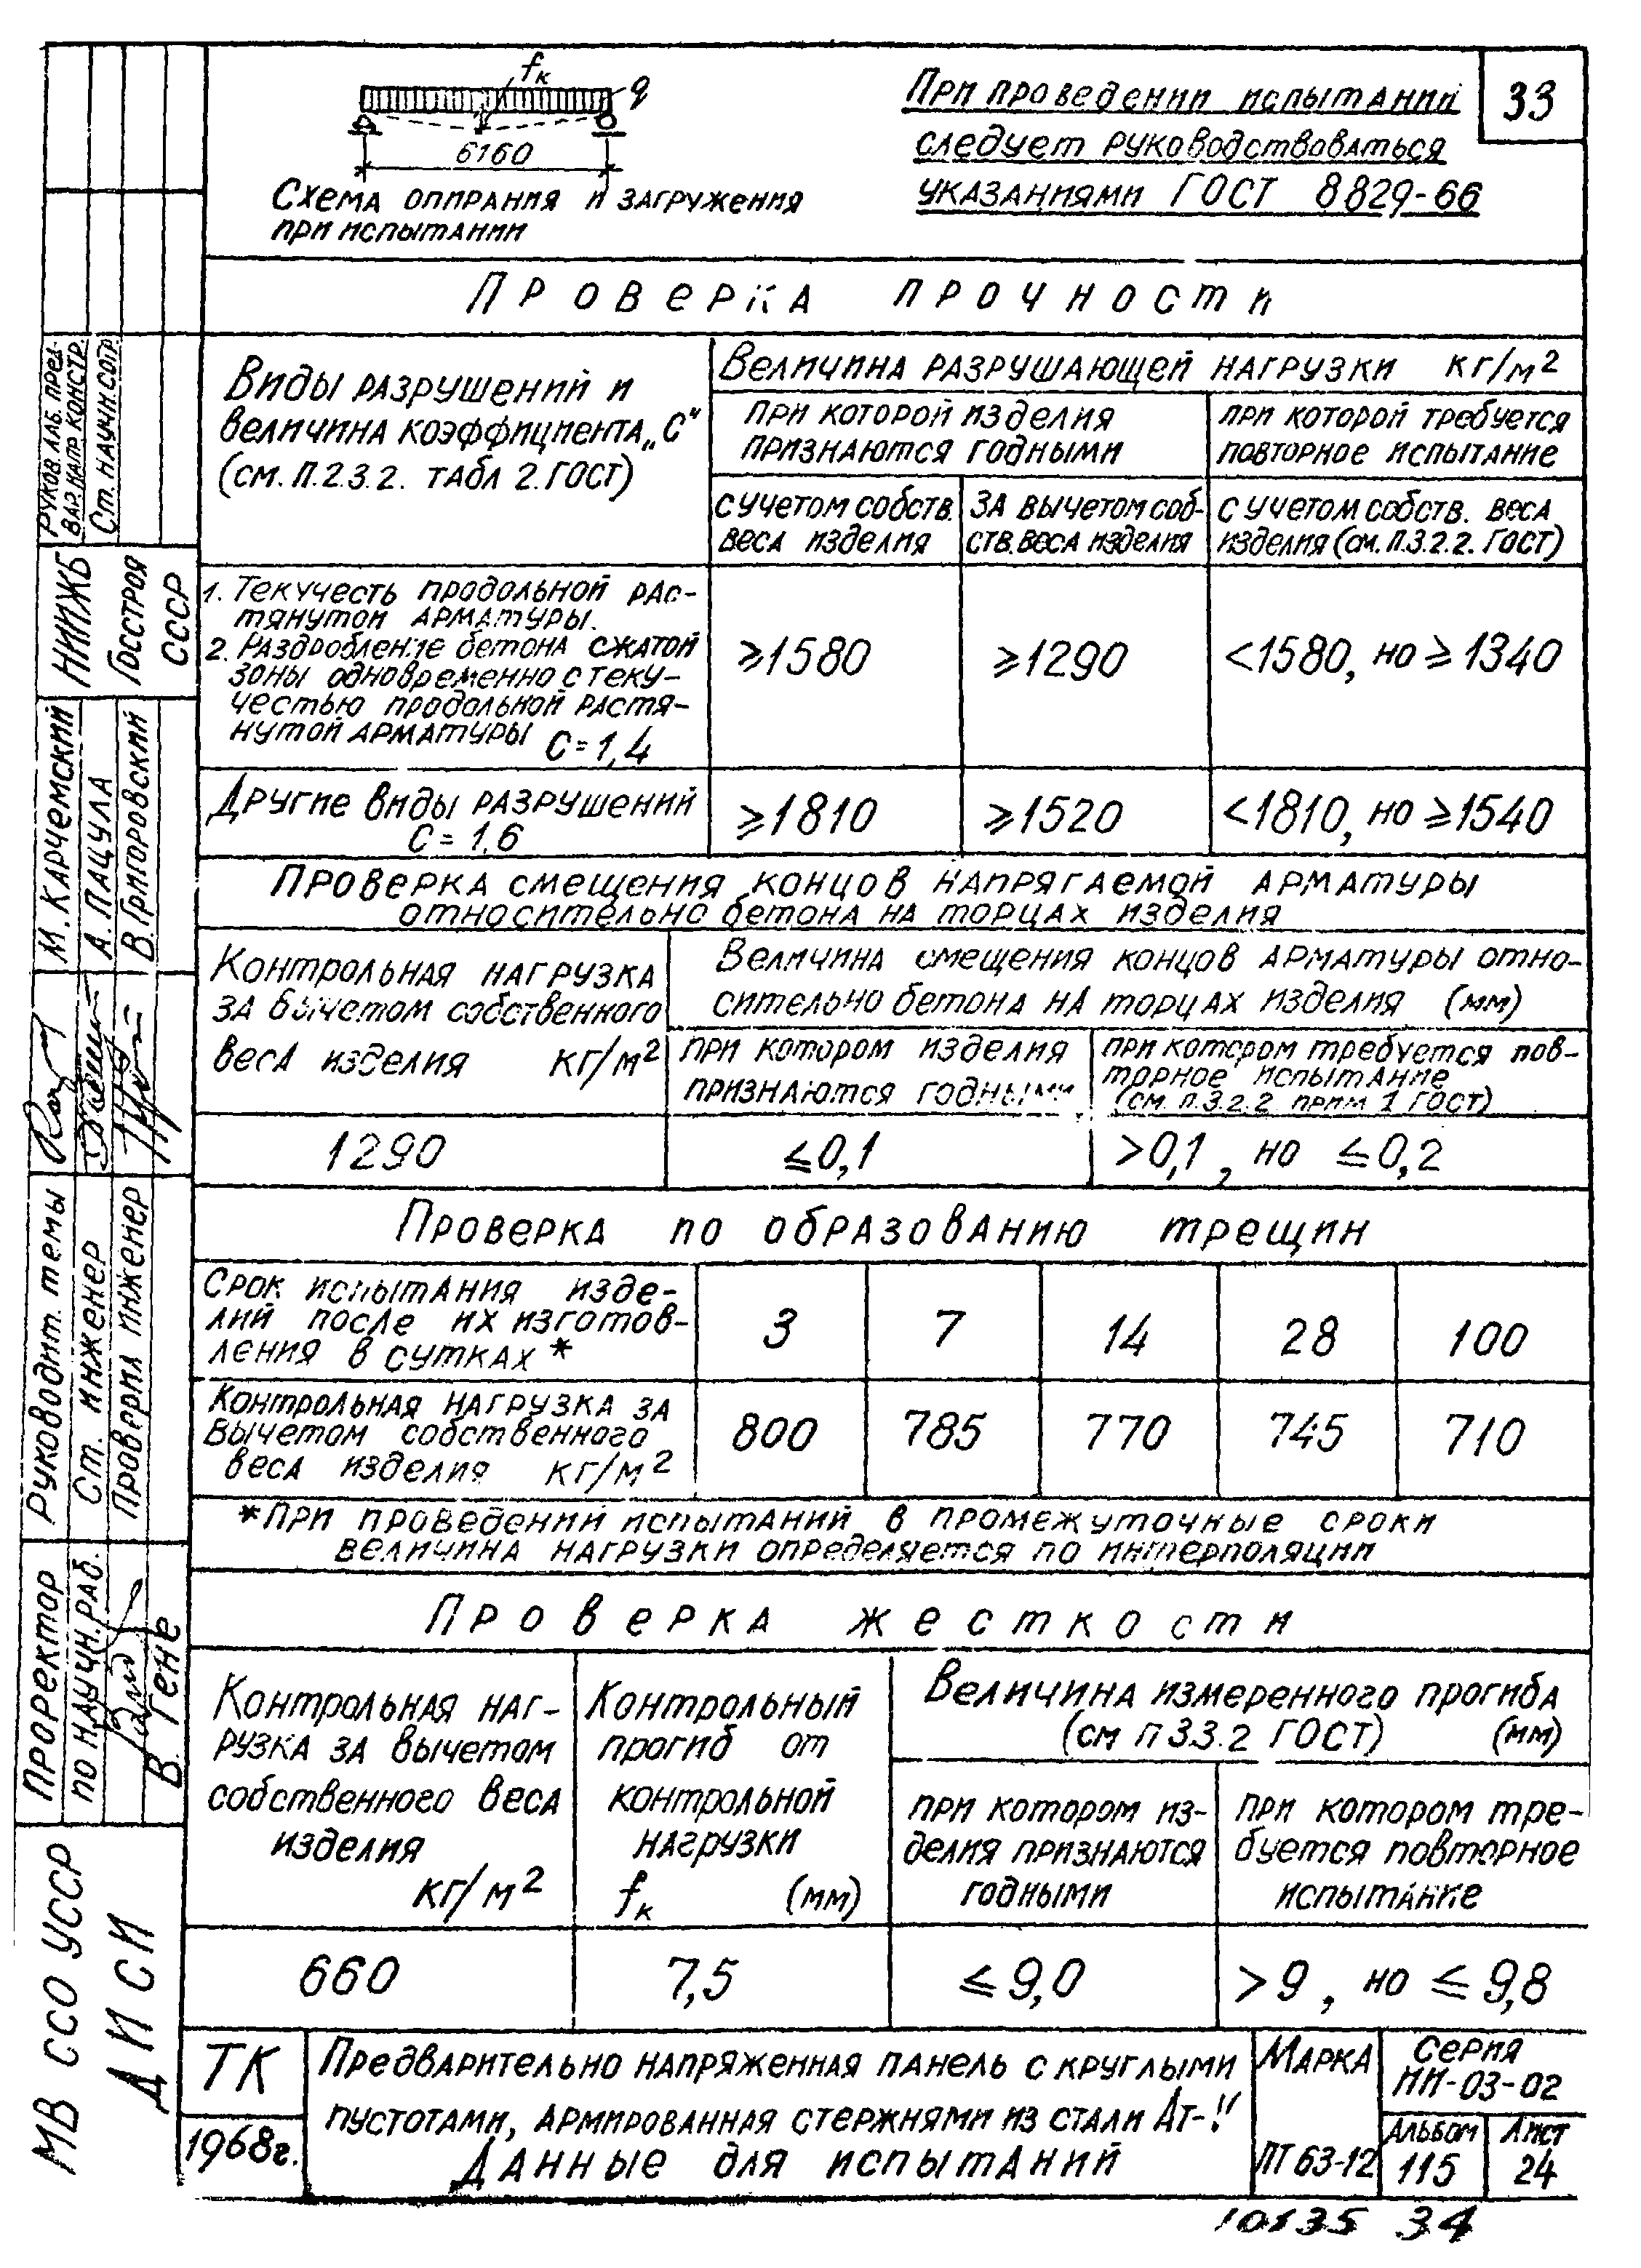 33
fк
q
6160
Схема опирания и загружения
при испытании
При проведении испытаний
следует руководствоваться
указаниями ГОСТ 8829-66
Проверка прочности
Виды разрушений и
величина коэффициента „С"
(см. п.2.3.2. табл 2. ГОСТ)
Величина разрушающей нагрузки кг/м²
при которой изделия
признаются годными
при которой требуется
повторное испытание
с учетом собств.
веса изделия
за вычетом соб-
ств. веса изделия
с учетом собств. веса
изделия (см. п.3.2.2. ГОСТ)
1. Текучесть продольной рас-
тянутой арматуры.
2. Раздробление бетона сжатой
зоны одновременно с теку-
честью продольной растя-
нутой арматуры С=1,4
⩾1580
⩾1290
<1580, но ⩾1340
Другие виды разрушений
С=1,6
⩾1810
⩾1520
<1810, но ⩾1540
Проверка смещения концов напрягаемой арматуры
относительно бетона на торцах изделия
Контрольная нагрузка
за вычетом собственного
веса изделия кг/м²
Величина смещения концов арматуры отно-
сительно бетона на торцах изделия (мм)
при котором изделия
признаются годными
при котором требуется пов-
торное испытание
(см. п.3.2.2 прим 1 ГОСТ)
1290
⩽0,1
>0,1, но ⩽0,2
Проверка по образованию трещин
Срок испытания изде-
лий после их изготов-
ления в сутках *
3
7
14
28
100
Контрольная нагрузка за
вычетом собственного
веса изделия кг/м²
800
785
770
745
710
*При проведении испытаний в промежуточные сроки
величина нагрузки определяется по интерполяции
Проверка жесткости
Контрольная наг-
рузка за вычетом
собственного веса
изделия
кг/м²
Контрольный
прогиб от
контрольной
нагрузки
fк (мм)
Величина измеренного прогиба
(см п 3.3.2 ГОСТ) (мм)
при котором из-
делия признаются
годными
при котором тре-
буется повторное
испытание
660
7,5
⩽9,0
>9, но ⩽9,8
ТК
1968г.
Предварительно напряженная панель с круглыми
пустотами, армированная стержнями из стали Ат-
Данные для испытаний
Марка
ПТ 63-12
Серия
ИИ-03-02
Альбом
115
Лист
24
34
Руков. лаб. пред-
вар. напр констр.
Ст. научн. сотр.
НИИЖБ
Госстроя
СССР
М. Карчемский
А. Пацула
В Григоровский
Руководит. темы
Ст. инженер
Проверил инженер
Проректор
по научн. раб.
В. Гене
МВ ССО УССР
ДИСИ